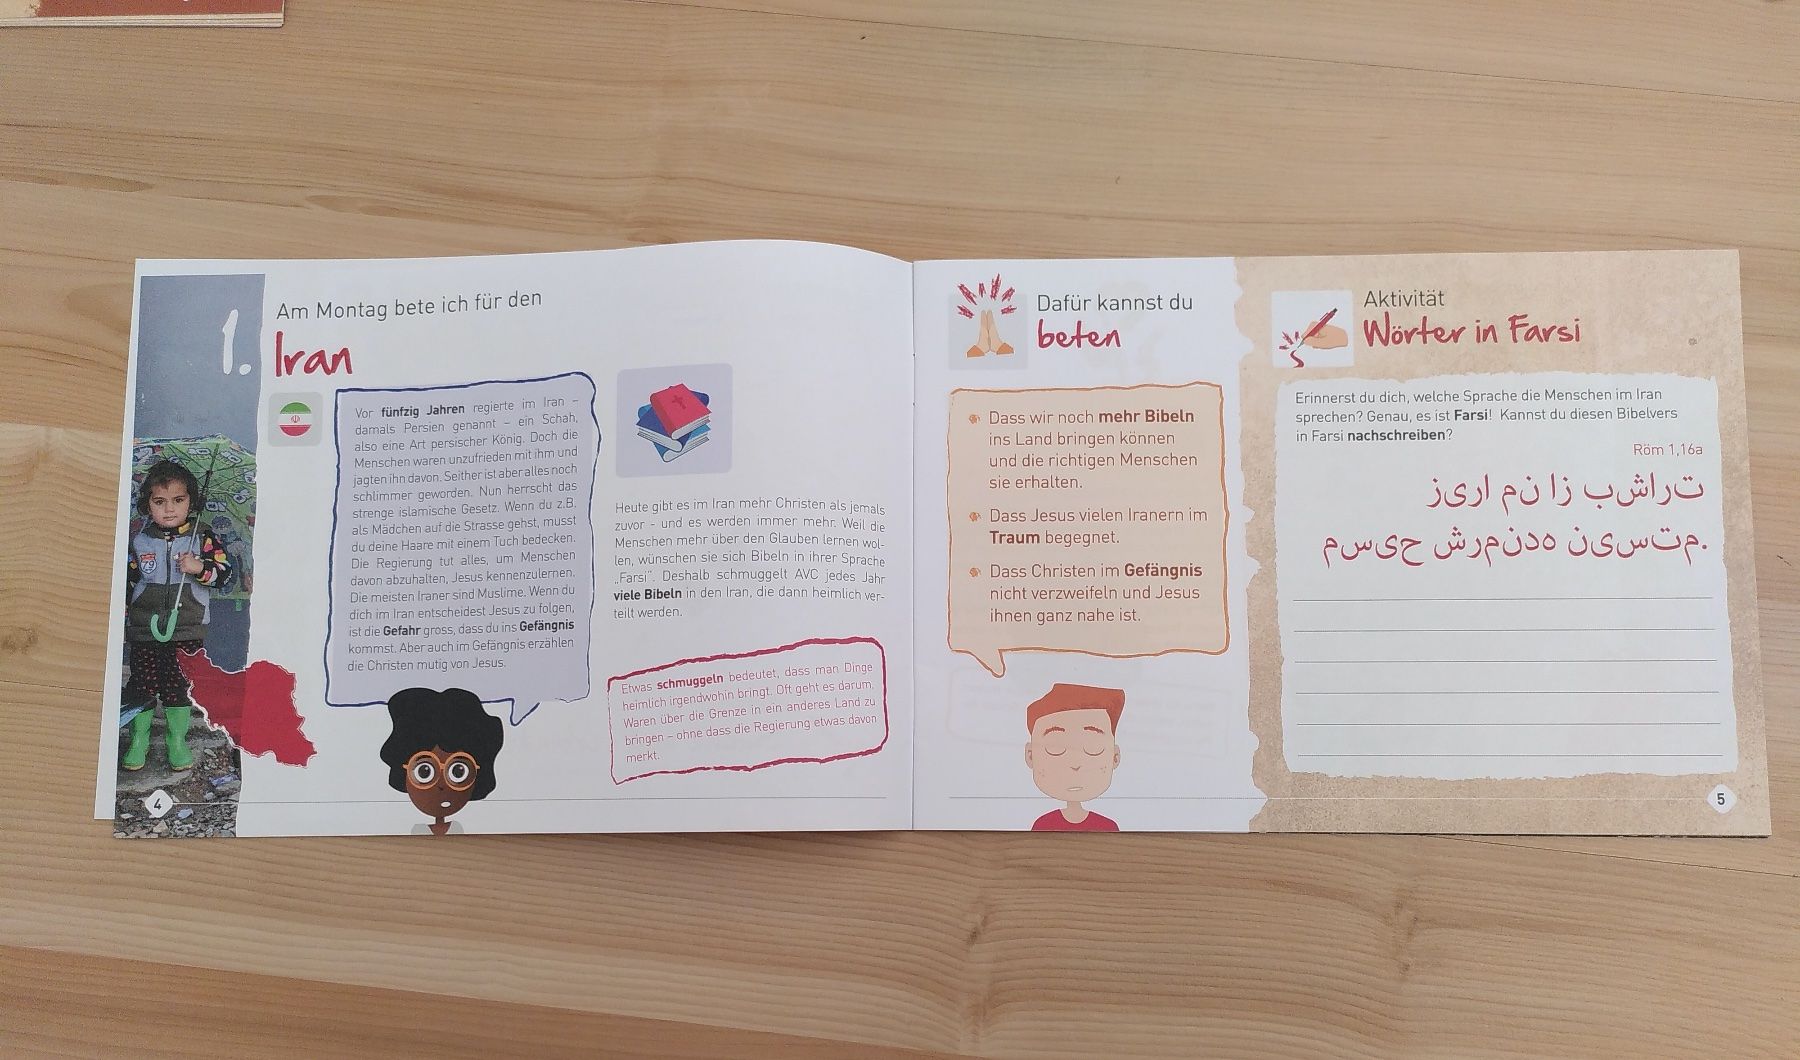 1.
Am Montag bete ich für den
Iran
Vor fünfzig Jahren regierte im Iran –
damals Persien genannt – ein Schah,
also eine Art persischer König. Doch die
Menschen waren unzufrieden mit ihm und
jagten ihn davon. Seither ist aber alles noch
schlimmer geworden. Nun herrscht das
strenge islamische Gesetz. Wenn du z.B.
als Mädchen auf die Strasse gehst, musst
du deine Haare mit einem Tuch bedecken.
Die Regierung tut alles, um Menschen
davon abzuhalten, Jesus kennenzulernen.
Die meisten Iraner sind Muslime. Wenn du
dich im Iran entscheidest Jesus zu folgen,
ist die Gefahr gross, dass du ins Gefängnis
kommst. Aber auch im Gefängnis erzählen
die Christen mutig von Jesus.
Heute gibt es im Iran mehr Christen als jemals
zuvor - und es werden immer mehr. Weil die
Menschen mehr über den Glauben lernen wol-
len, wünschen sie sich Bibeln in ihrer Sprache
„Farsi“. Deshalb schmuggelt AVC jedes Jahr
viele Bibeln in den Iran, die dann heimlich ver-
teilt werden.
Etwas schmuggeln bedeutet, dass man Dinge
heimlich irgendwohin bringt. Oft geht es darum,
Waren über die Grenze in ein anderes Land zu
bringen – ohne dass die Regierung etwas davon
merkt.
79
4
Dafür kannst du
beten
Dass wir noch mehr Bibeln
ins Land bringen können
und die richtigen Menschen
sie erhalten.
Dass Jesus vielen Iranern im
Traum begegnet.
Dass Christen im Gefängnis
nicht verzweifeln und Jesus
ihnen ganz nahe ist.
Aktivität
Wörter in Farsi
Erinnerst du dich, welche Sprache die Menschen im Iran
sprechen? Genau, es ist Farsi! Kannst du diesen Bibelvers
in Farsi nachschreiben?
Röm 1,16a
تراشب زا نم اریز
.متسین هدنمرش حیسم
5